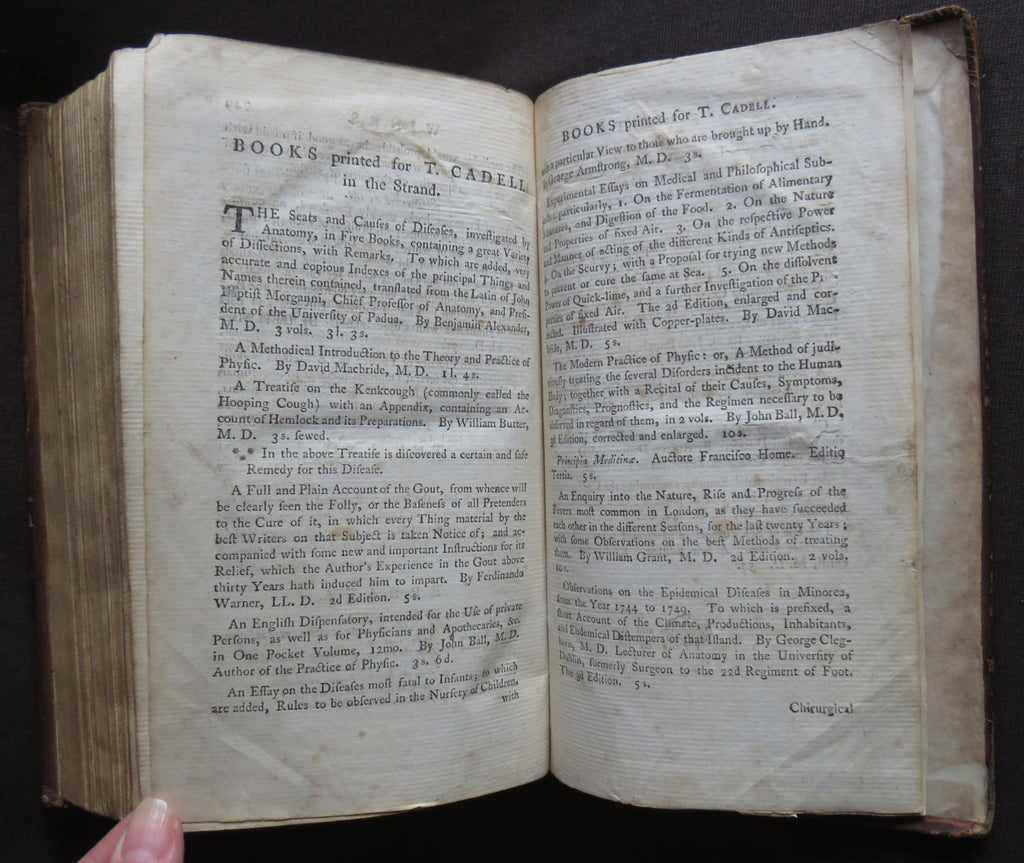 BOOKS printed for T. CADELL
in the Strand.
THE Seats and Cauſes of Diſeaſes, inveſtigated by
Anatomy, in Five Books, containing a great Variety
of Diſſections, with Remarks. To which are added, very
accurate and copious Indexes of the principal Things and
Names therein contained, tranſlated from the Latin of John
Baptiſt Morganni, Chief Profeſſor of Anatomy, and Preſi-
dent of the Univerſity of Padua. By Benjamin Alexander,
M. D. 3 vols. 3l. 3s.
A Methodical Introduction to the Theory and Practice of
Phyſic. By David Macbride, M. D. 1l. 4s.
A Treatiſe on the Kenkcough (commonly called the
Hooping Cough) with an Appendix, containing an Ac-
count of Hemlock and its Preparations. By William Butter,
M. D. 3s. ſewed.
*** In the above Treatiſe is diſcovered a certain and ſafe
Remedy for this Diſeaſe.
A Full and Plain Account of the Gout, from whence will
be clearly ſeen the Folly, or the Baſeneſs of all Pretenders
to the Cure of it, in which every Thing material by the
beſt Writers on that Subject is taken Notice of; and ac-
companied with ſome new and important Inſtructions for its
Relief, which the Author's Experience in the Gout above
thirty Years hath induced him to impart. By Ferdinando
Warner, LL. D. 2d Edition. 5s.
An Engliſh Diſpenſatory, intended for the Uſe of private
Perſons, as well as for Phyſicians and Apothecaries, &c.
in One Pocket Volume, 12mo. By John Ball, M. D.
Author of the Practice of Phyſic. 3s. 6d.
An Eſſay on the Diſeaſes moſt fatal to Infants; to which
are added, Rules to be obſerved in the Nurſery of Children,
with
BOOKS printed for T. CADELL.
a particular View to thoſe who are brought up by Hand.
By George Armſtrong, M. D. 3s.
Experimental Eſſays on Medical and Philoſophical Sub-
particularly, 1. On the Fermentation of Alimentary
Mixtures, and Digeſtion of the Food. 2. On the Nature
and Properties of fixed Air. 3. On the reſpective Power
and Manner of acting of the different Kinds of Antiſeptics.
4. On the Scurvy; with a Propoſal for trying new Methods
to prevent or cure the ſame at Sea. 5. On the diſſolvent
Power of Quick-lime, and a further Inveſtigation of the
of fixed Air. The 2d Edition, enlarged and cor-
rected. Illuſtrated with Copper-plates. By David Mac-
bride, M. D. 5s.
The Modern Practice of Phyſic: or, A Method of judi-
ciouſly treating the ſeveral Diſorders incident to the Human
Body; together with a Recital of their Cauſes, Symptoms,
Diagnoſtics, Prognoſtics, and the Regimen neceſſary to be
obſerved in regard of them, in 2 vols. By John Ball, M. D.
3d Edition, corrected and enlarged. 10s.
Principia Medicinæ. Auctore Franciſco Home. Editio
Tertia. 5s.
An Enquiry into the Nature, Riſe and Progreſs of the
Fevers moſt common in London, as they have ſucceeded
each other in the different Seaſons, for the laſt twenty Years;
with ſome Obſervations on the beſt Methods of treating
them. By William Grant, M. D. 2d Edition. 2 vols.
10s.
Obſervations on the Epidemical Diſeaſes in Minorca,
from the Year 1744 to 1749. To which is prefixed, a
ſhort Account of the Climate, Productions, Inhabitants,
and Endemical Diſtempers of that Iſland. By George Cleg-
horn, M. D. Lecturer of Anatomy in the Univerſity of
Dublin, formerly Surgeon to the 22d Regiment of Foot.
The 3d Edition. 5s.
Chirurgical